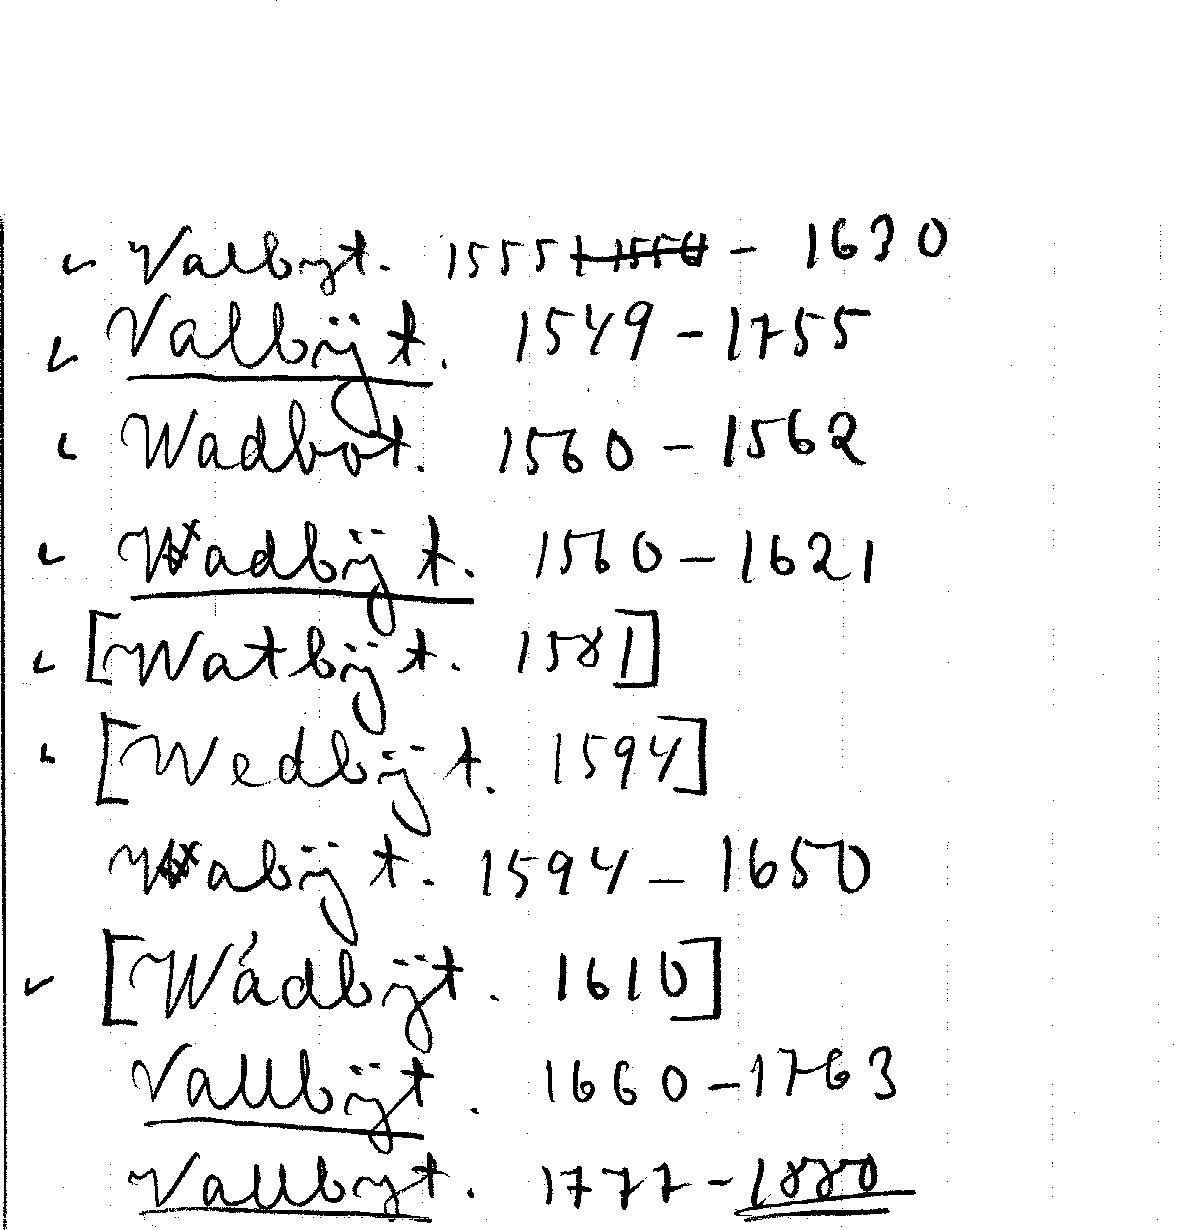 Valbyt. 1555 - 1630
Valbÿt. 1549 - 1755
Wadbot. 1560 - 1562
Wadbÿt. 1560 - 1621
[Watbÿt. 1581]
[Wedbÿt. 1594]
Wabÿt. 1594 - 1650
[Wádbÿt. 1610]
Vallbÿt. 1660 - 1763
Vallbyt. 1777 - 1880